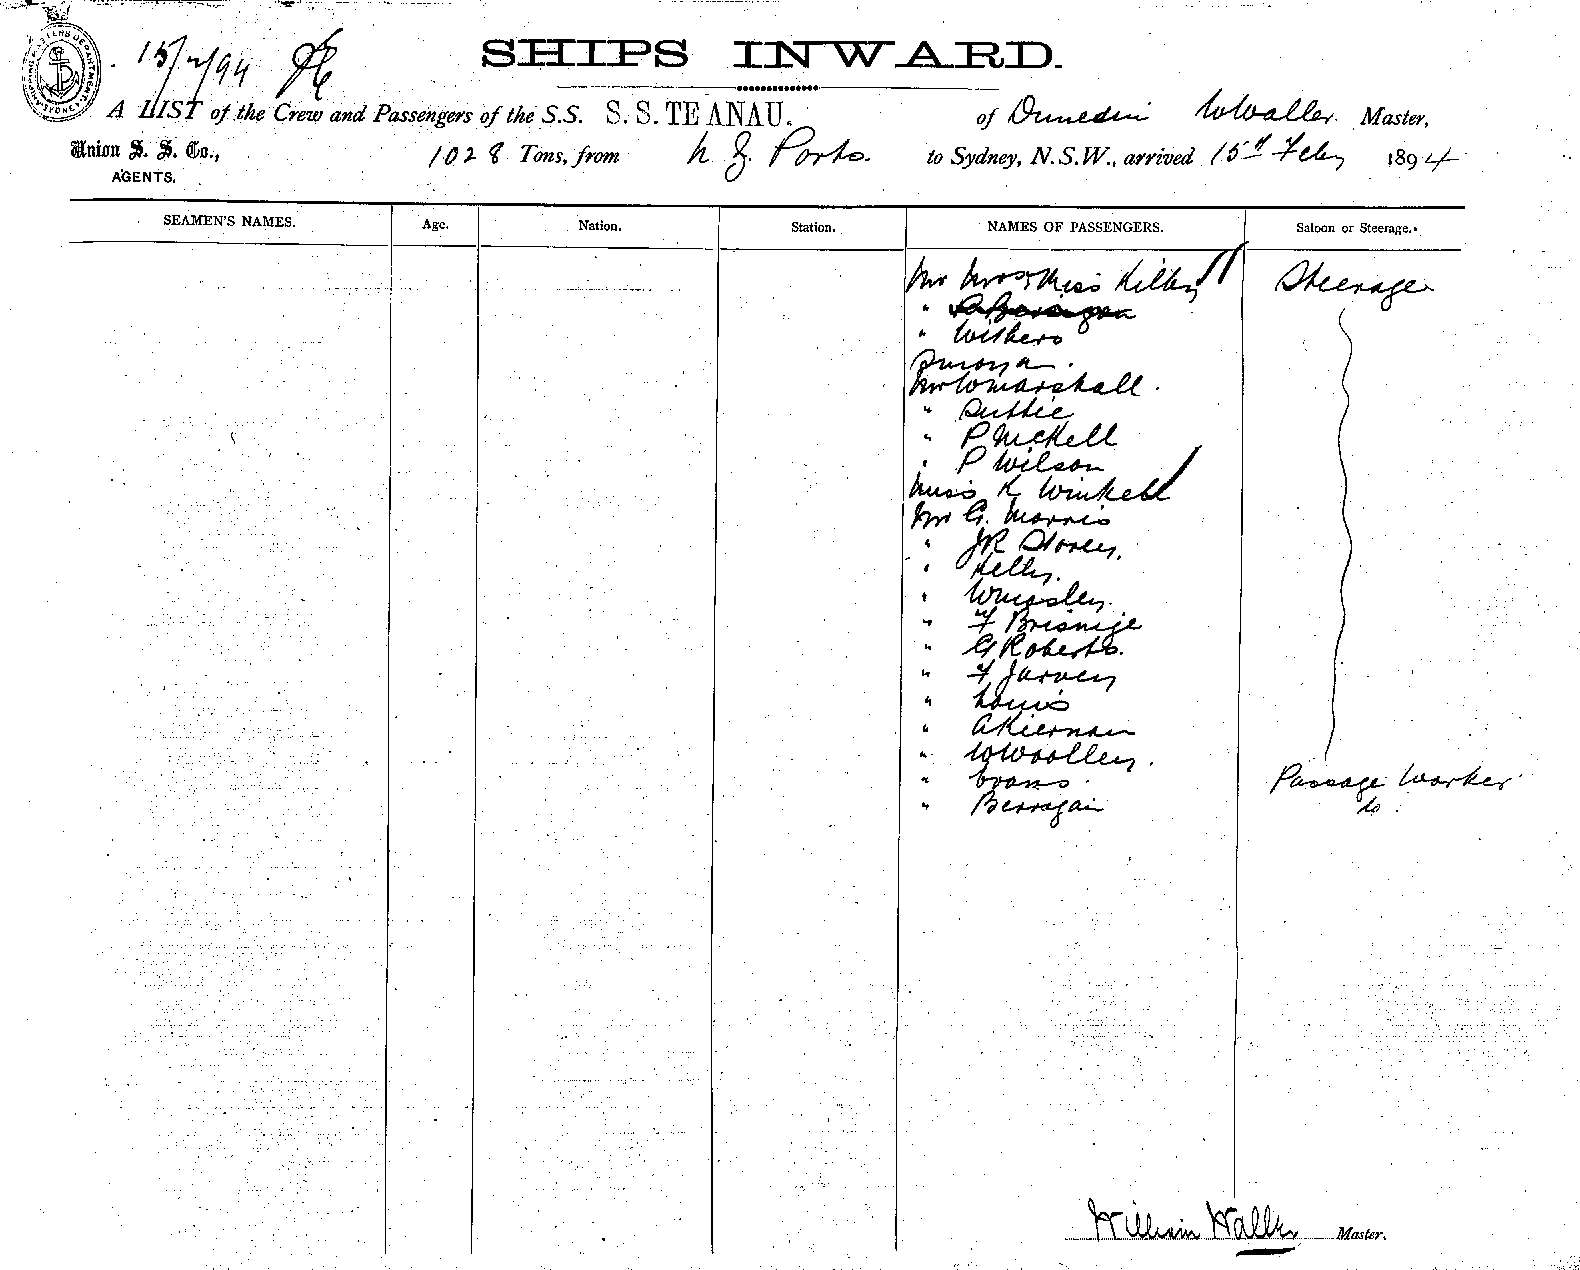 15/2/94
SHIPS INWARD.
A LIST of the Crew and Passengers of the S.S. S. S. TE ANAU. of Dunedin W Waller Master,
Union S. S. Co., 1028 Tons, from N. Z. Ports. to Sydney, N.S.W., arrived 15th Feby 1894
AGENTS.
SEAMEN'S NAMES. Age. Nation. Station. NAMES OF PASSENGERS. Saloon or Steerage.
Mr Mrs & Miss Kilby Steerage
" Withers
Mr W Marshall.
" Suttie
" P McKell
" P Wilson
Miss K Winkell
Mr G. Morris
" J R Storey.
" Kelly.
" Wmsley.
" F
" G Roberts.
" F Jarvey
" Louis
" A Kiernan
" W Woolley.
" Evans Passage Worker
" Berragan do
William Waller Master.